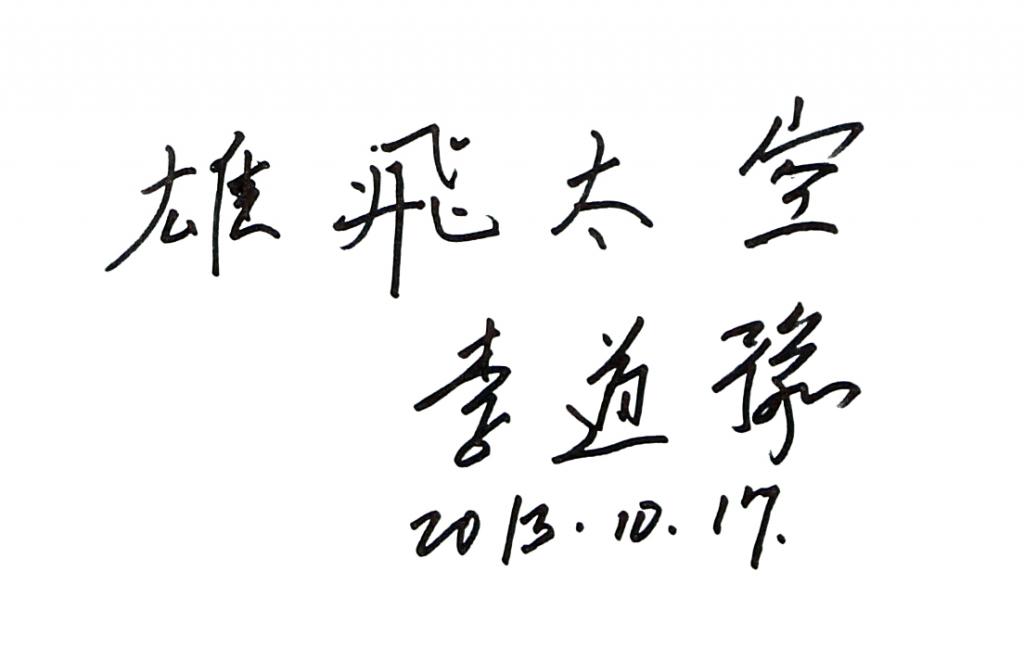 雄飛太空
李道豫
2013.10.17.